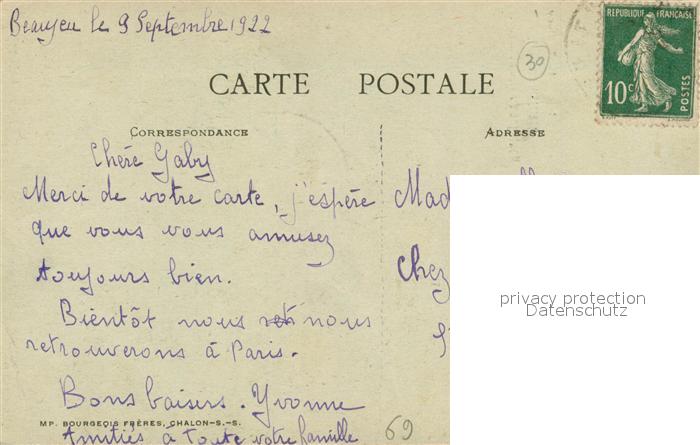 Beaujeu le 9 Septembre 1922
30
REPUBLIQUE FRANÇAISE
10c
POSTES
CARTE POSTALE
CORRESPONDANCE
ADRESSE
Chère Gaby
Merci de votre carte, j'espère
que vous vous amusez
toujours bien.
Bientôt nous nous
retrouverons à Paris.
Bons baisers. Yvonne
Amitiés à toute votre famille
MP. BOURGEOIS FRÈRES, CHALON-S.-S.
69
Chez
privacy protection
Datenschutz